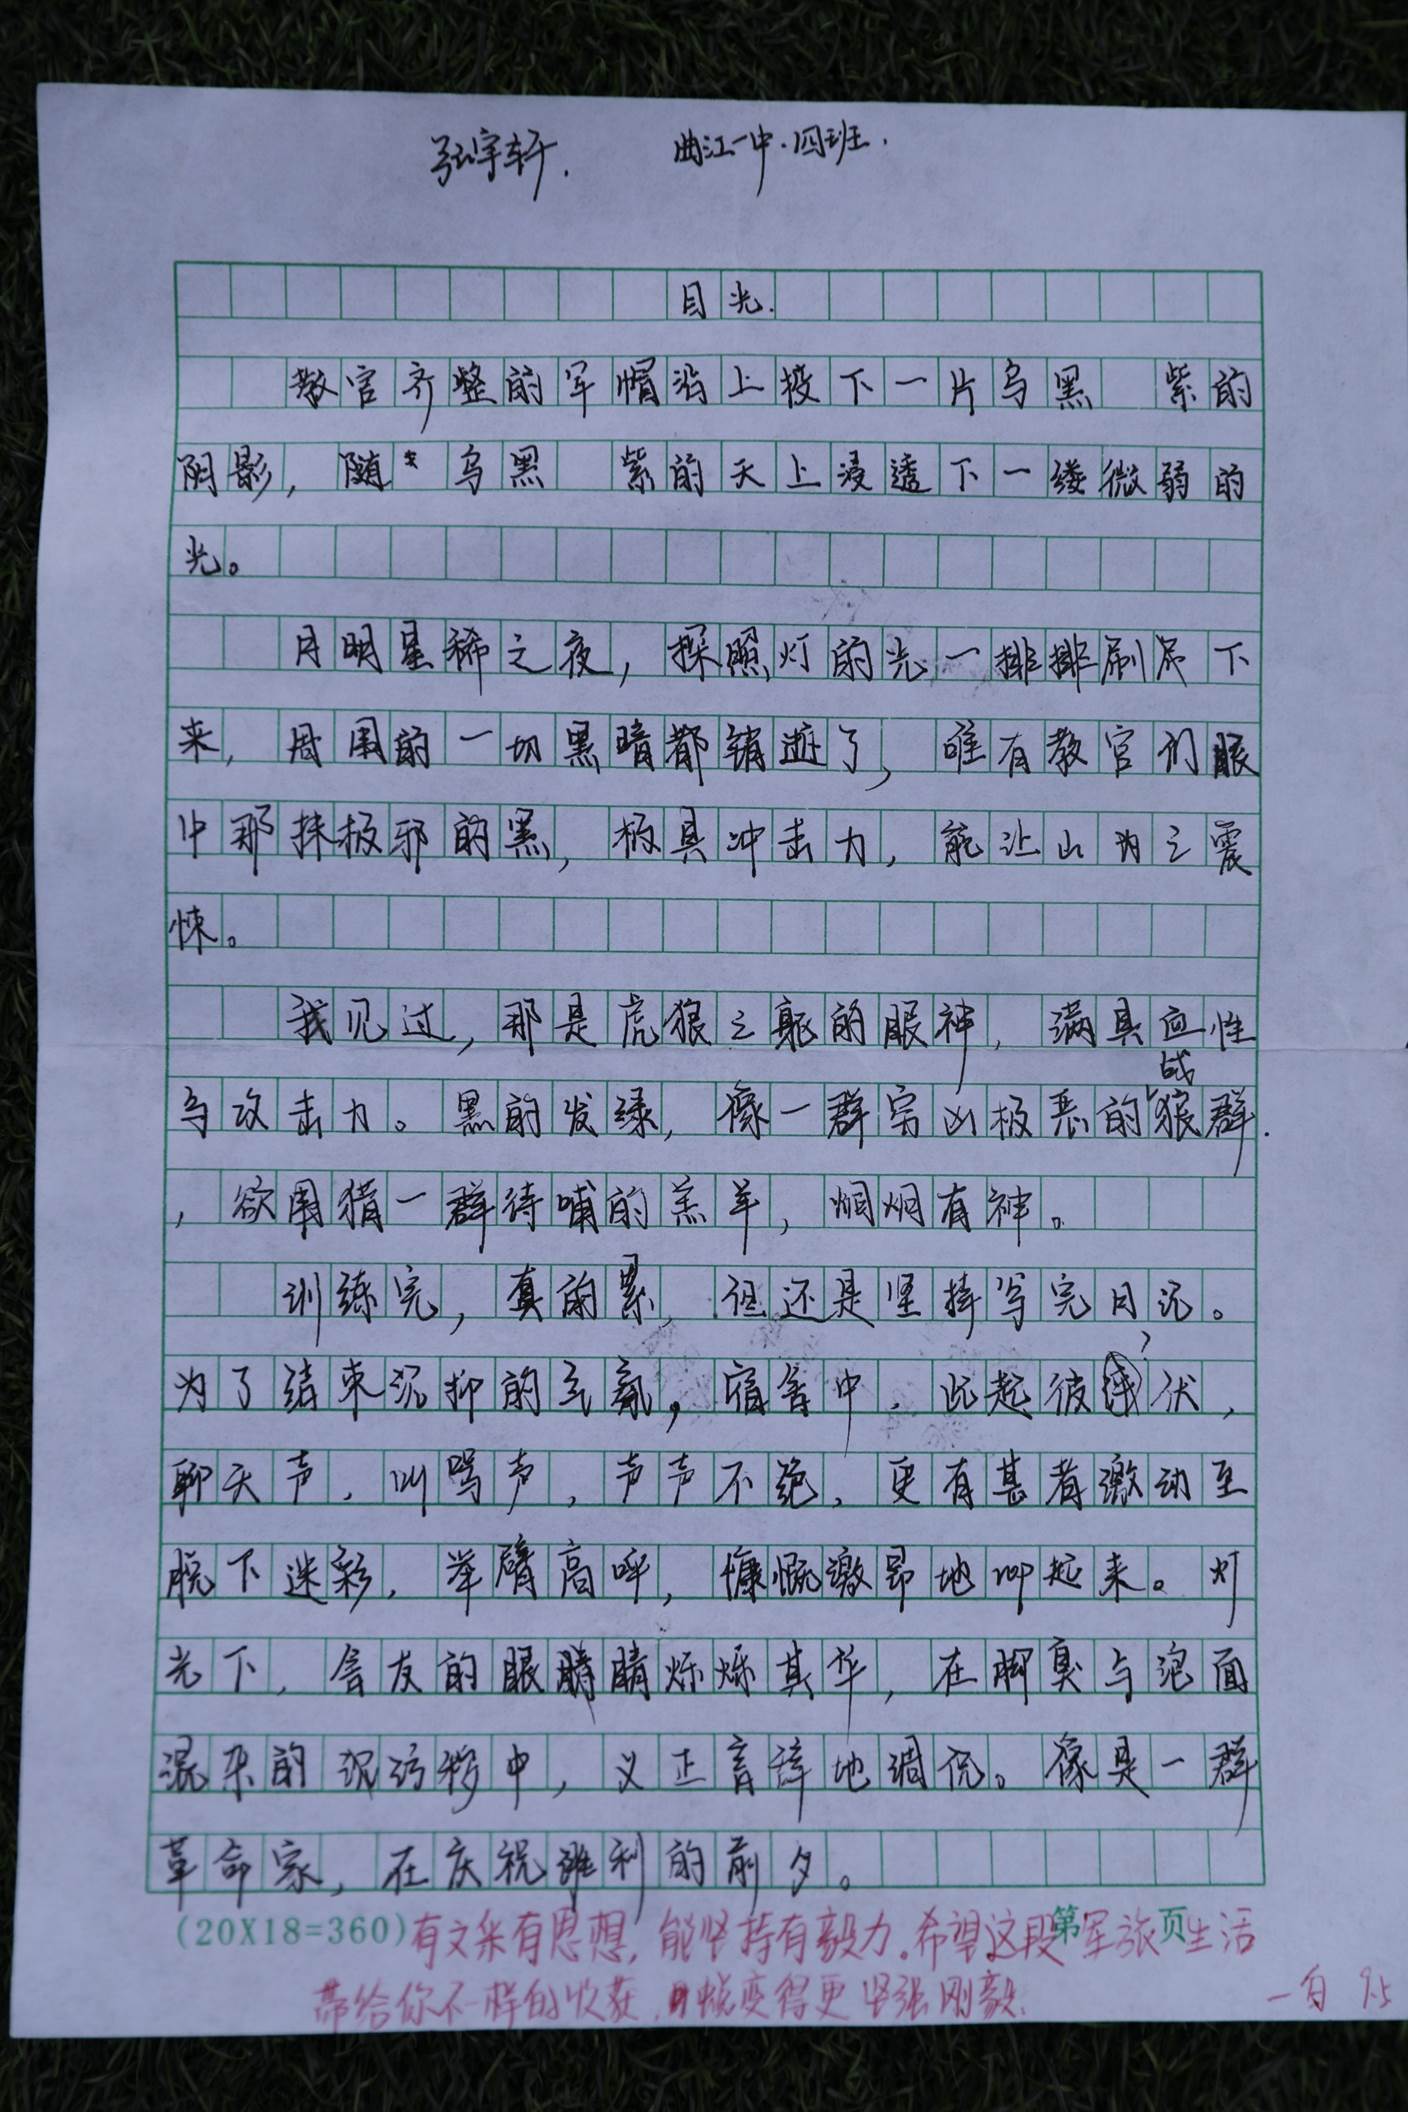 张宇轩. 曲江一中.四班.
目光.
教官齐整的军帽沿上投下一片乌黑 紫的
阴影，随 乌黑 紫的天上浸透下一缕微弱的
光。
月明星稀之夜，探照灯的光一排排刷尽下
来，周围的一切黑暗都销逝了，唯有教官们眼
中那抹极邪的黑，极具冲击力，能让山为之震
悚。
我见过，那是虎狼之躯的眼神，满具血性
与攻击力。黑的发绿，像一群穷凶极恶的战狼群.
，欲围猎一群待哺的羔羊，炯炯有神。
训练完，真的累，但还是坚持写完日记。
为了结束沉抑的气氛，宿舍中，此起彼伏，
聊天声，叫骂声，声声不绝，更有甚者激动至
脱下迷彩，举臂高呼，慷慨激昂地叫起来。灯
光下，舍友的眼睛睛烁烁其华，在脚臭与泡面
混杂的沉污秽中，义正言辞地调侃。像是一群
革命家，在庆祝胜利的前夕。
(20X18=360) 第 页
有文采有思想，能坚持有毅力。希望这段军旅生活
带给你不一样的收获，蜕变得更坚强刚毅.
一白 9.5